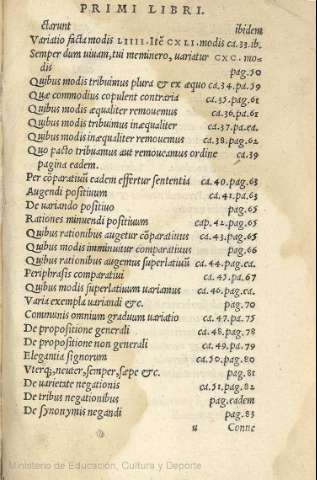 PRIMI LIBRI.
ctarunt ibidem
Variatio facta modis LIIII. Itẽ CXLI. modis ca.33.ib.
Semper dum uiuam, tui meminero, uariatur CXC. mo-
dis pag.50
Quibus modis tribuimus plura & ex æquo ca.34.pa.59
Quæ commodius copulent contraria ca.35.pag.61
Quibus modis æqualiter remouemus ca.36.pa.61
Quibus modis tribuimus inæqualiter ca.37.pa.ea.
Quibus modis inæqualiter remouemus ca.38.pag.62
Quo pacto tribuamus aut remoueamus ordine ca.39
pagina eadem.
Per cõparatiuũ eadem effertur sententia ca.40.pag.63
Augendi positiuum ca.41.pa.63
De uariando positiuo pag.65
Rationes minuendi positiuum cap.42.pag.65
Quibus rationibus augetur cõparatiuus ca.43.pag.65
Quibus modis imminuitur comparatiuus pag.66
Quibus rationibus augemus superlatiuũ ca.44.pag.ea.
Periphrasis comparatiui ca.45.pa.67
Quibus modis superlatiuum uariamus ca.46.pag.ea.
Varia exempla uariandi &c. pag.70
Communis omnium graduum uariatio ca.47.pa.75
De propositione generali ca.48.pag.78
De propositione non generali ca.49.pa.79
Elegantia signorum ca.50.pag.80
Vterq;, neuter, semper, sæpe &c. pag.81
De uarietate negationis ca.51.pag.82
De tribus negationibus pag.eadem
De synonymis negandi pag.83
u Conne
Ministerio de Educación, Cultura y Deporte